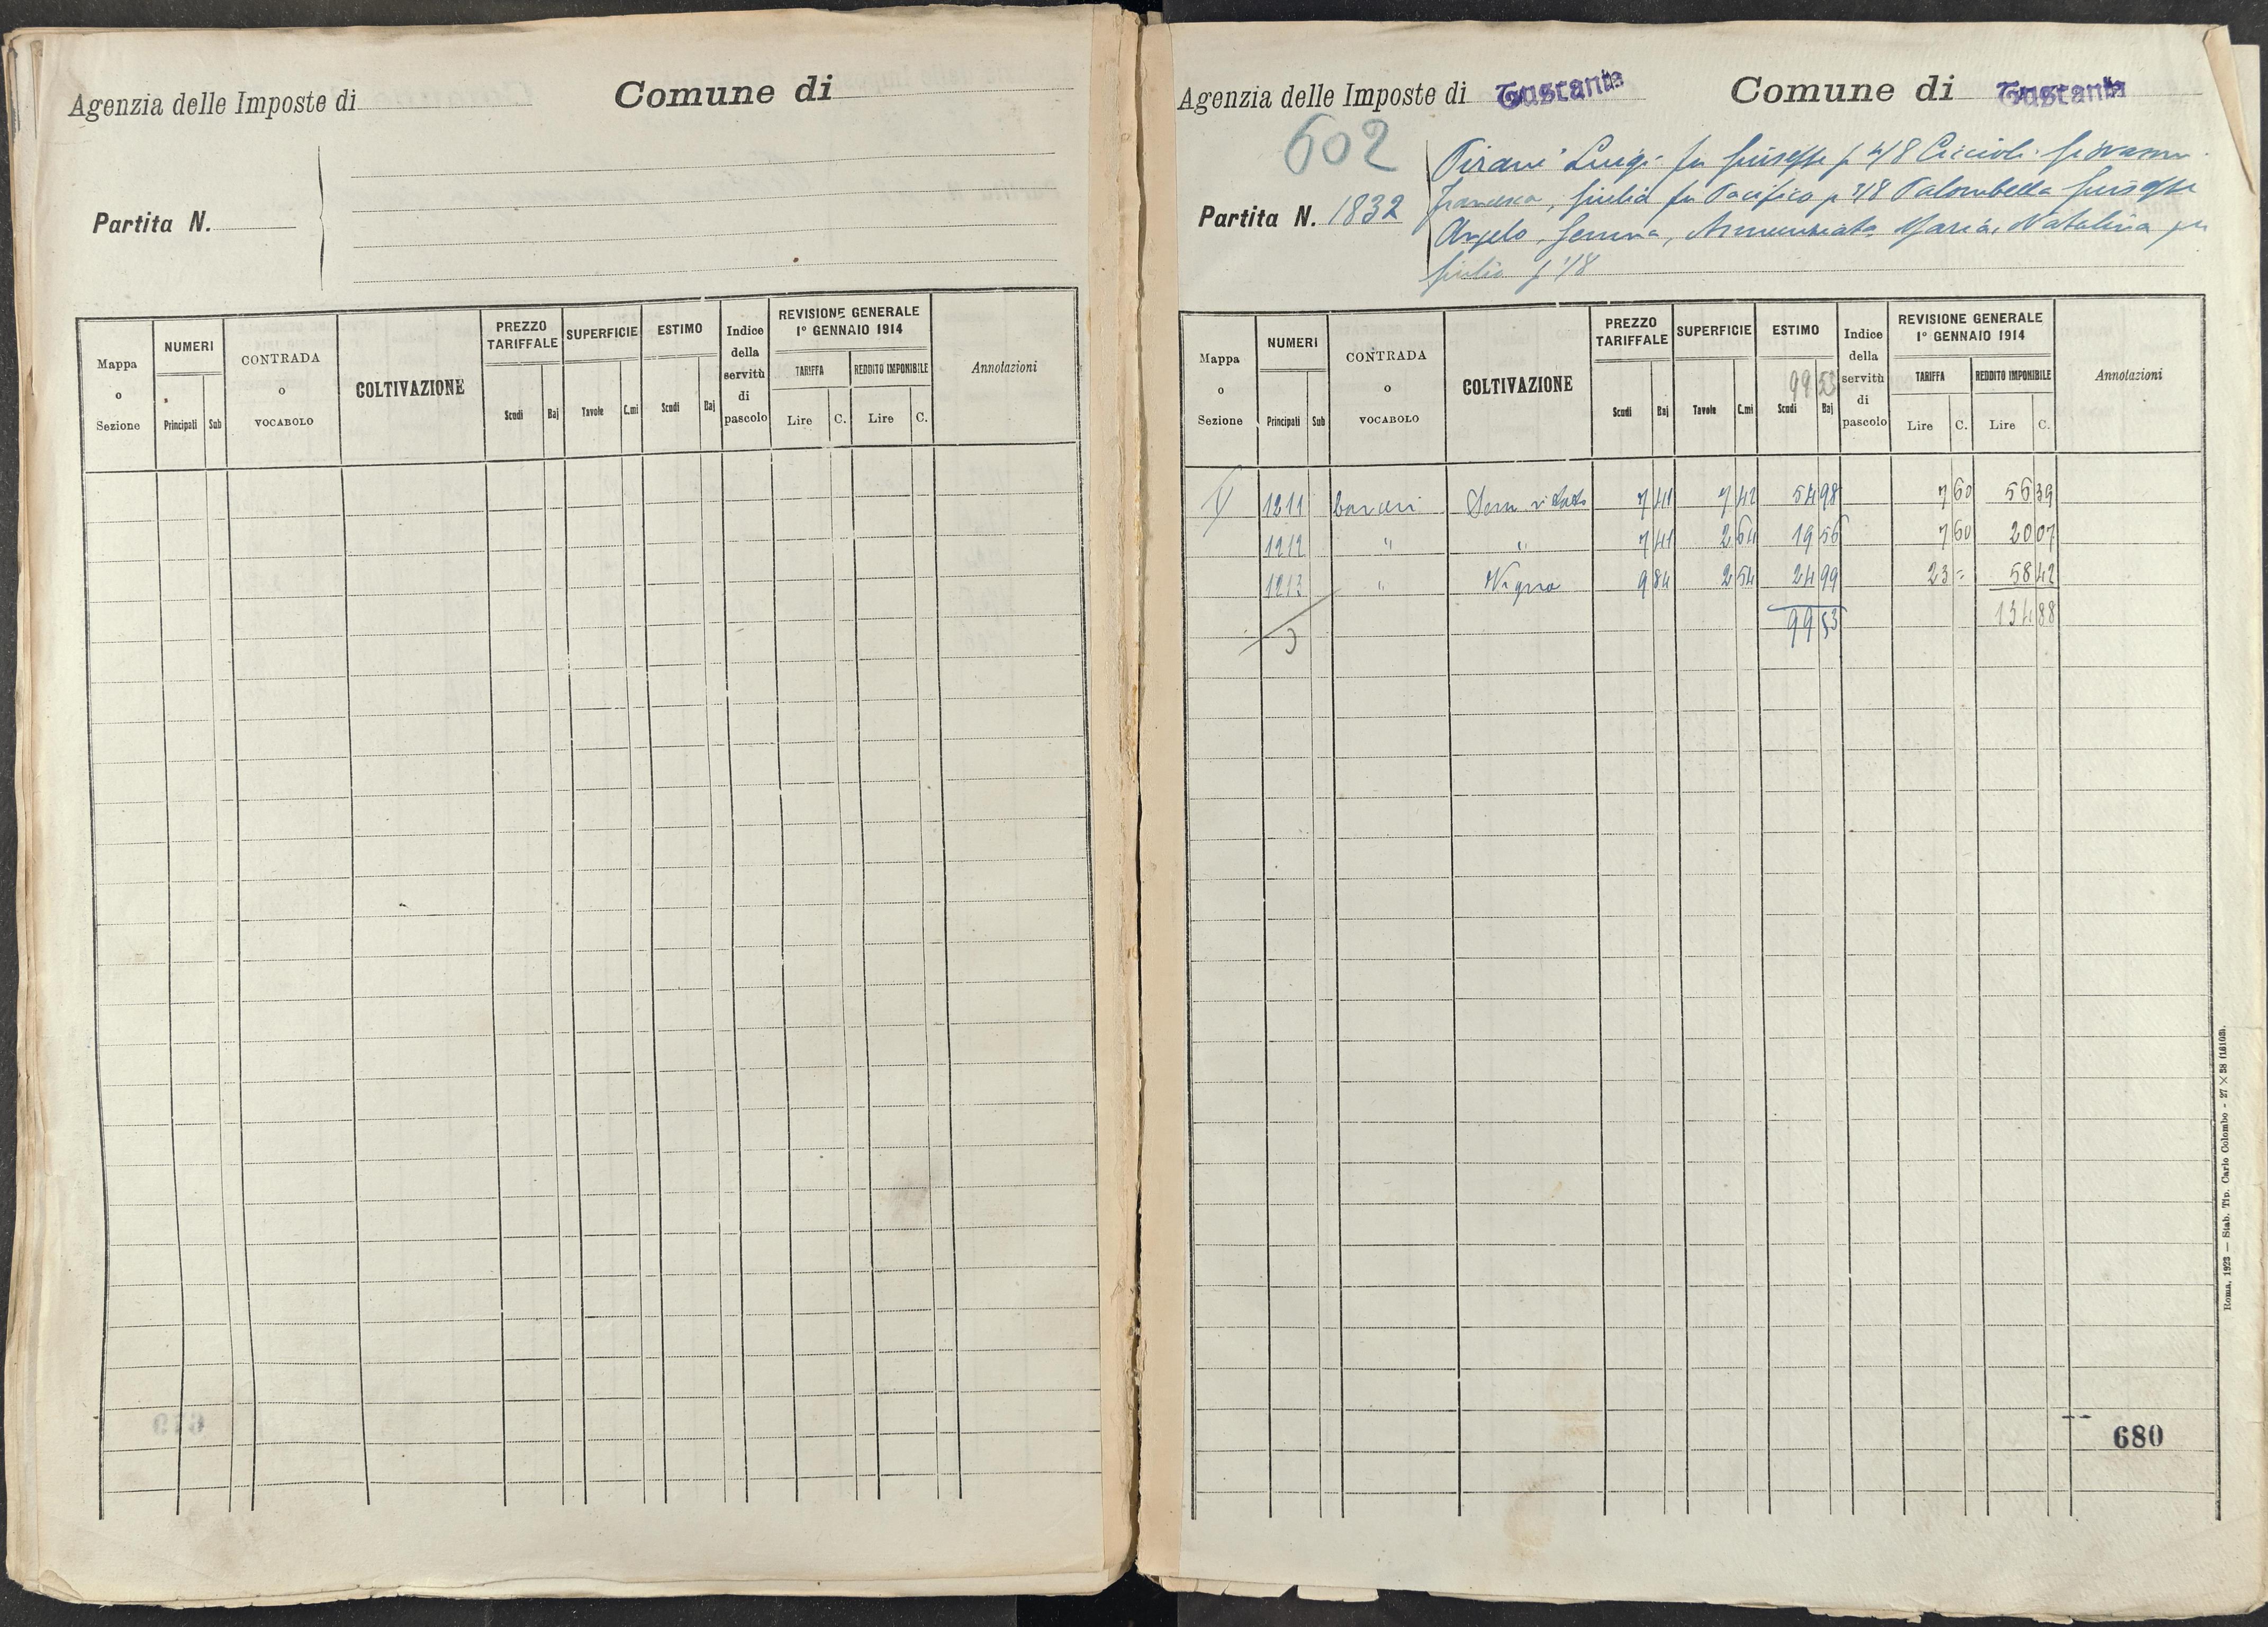 Agenzia delle Imposte di
Comune di
Partita N.
Mappa o Sezione
NUMERI
Principali
Sub
CONTRADA o VOCABOLO
COLTIVAZIONE
PREZZO TARIFFALE
Scudi
Baj
SUPERFICIE
Tavole
C.mi
ESTIMO
Scudi
Baj
Indice della servitù di pascolo
REVISIONE GENERALE
1° GENNAIO 1914
TARIFFA
Lire
C.
REDDITO IMPONIBILE
Lire
C.
Annotazioni
Agenzia delle Imposte di Tuscania
Comune di Tuscania
602
Partita N. 1832
Pirani Luigi fu Giuseppe p 4/8 Ciccioli Giovanni
Francesca, Giulia fu Pacifico p 3/8 Palombella Giuseppe
Angelo, Gemma, Annunziata Maria, Natalina fu
Giulio p 1/8
Mappa o Sezione
NUMERI
Principali
Sub
CONTRADA o VOCABOLO
COLTIVAZIONE
PREZZO TARIFFALE
Scudi
Baj
SUPERFICIE
Tavole
C.mi
ESTIMO
99 53
Scudi
Baj
Indice della servitù di pascolo
REVISIONE GENERALE
1° GENNAIO 1914
TARIFFA
Lire
C.
REDDITO IMPONIBILE
Lire
C.
Annotazioni
1211 Sem vitato 7 41 7 42 54 98 7 60 56 39
1212 " " 7 41 2 64 19 56 7 60 20 07
1213 " Vigna 9 84 2 54 24 99 23 = 58 42
99 53 134 88
680
Roma, 1923 — Stab. Tip. Carlo Colombo - 27 × 38